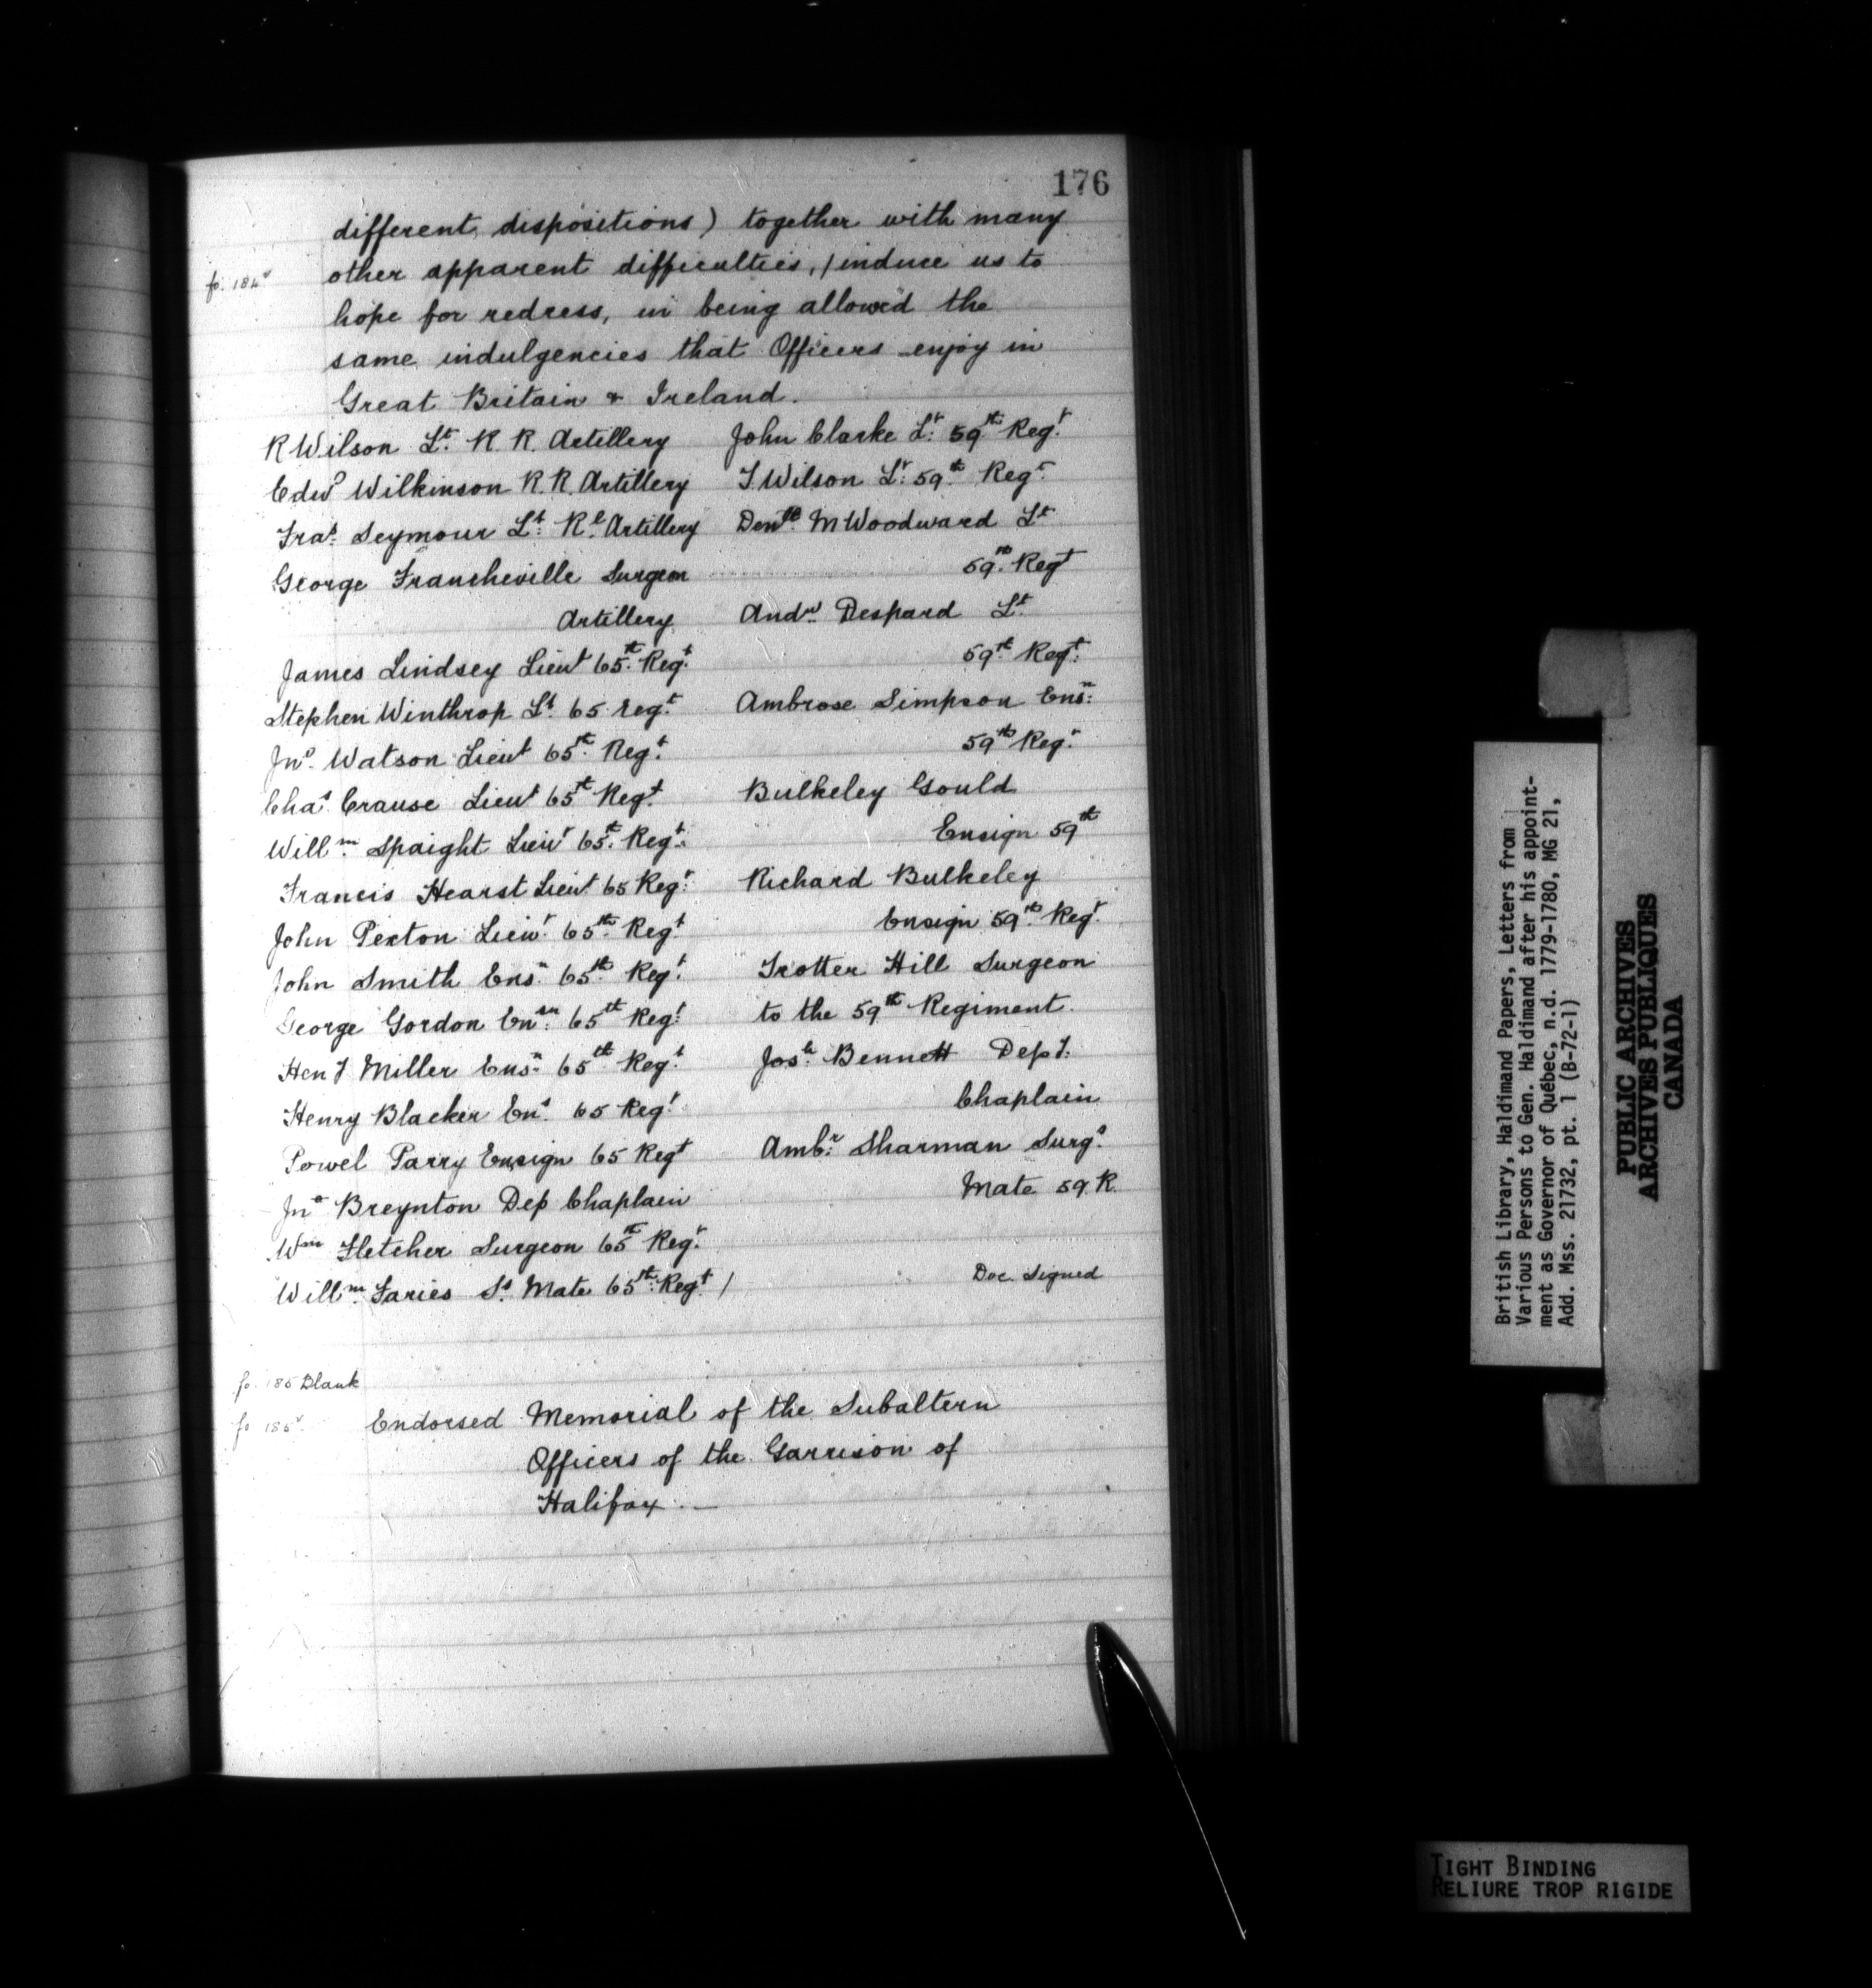 176
different dispositions) together with many
fo. 184v
other apparent difficulties,/induce us to
hope for redress, in being allowed the
same indulgencies that Officers enjoy in
Great Britain & Ireland.
R Wilson Lt. R. R. Artillery
Edwd Wilkinson R. R. Artillery
Fras. Seymour Lt. Rl. Artillery
George Francheville Surgeon
Artillery
James Lindsey Lieut 65th. Regt.
Stephen Winthrop Lt. 65 Regt.
Jno. Watson Lieut 65th. Regt.
Chas. Crause Lieut 65th Regt.
Willm. Spaight Lieut 65th. Regt.
Francis Hearst Lieut 65 Regt.
John Pexton Lieut. 65th. Regt.
John Smith Ensn 65th. Regt.
George Gordon Ensn. 65th Regt.
Hen J Miller Ensn. 65th Regt.
Henry Blacker Ens 65 Regt.
Powel Parry Ensign 65 Regt
Jno Breynton Dep Chaplain
Wm Fletcher Surgeon 65th Regt.
Willm. Faries Ss. Mate 65th. Regt. /
John Clarke Lt. 59th. Regt.
T. Wilson Lt. 59th. Regt.
M Woodward Lt
59th. Regt
Andw. Despard Lt.
59th. Regt.
Ambrose Simpson Ensn.
59th Regt.
Bulkeley Gould
Ensign 59th
Richard Bulkeley
Ensign 59th. Regt.
Trotter Hill Surgeon
to the 59th Regiment.
Josh Bennett Dept.
Chaplain
Ambr. Sharman Surgs.
Mate 59. R.
Doc. Signed
fo. 185 Blank
fo 185v.
Endorsed Memorial of the Subaltern
Officers of the Garrison of
Halifax. —
British Library, Haldimand Papers, Letters from
Various Persons to Gen. Haldimand after his appoint-
ment as Governor of Québec, n.d. 1779-1780, MG 21,
Add. Mss. 21732, pt. 1 (B-72-1)
PUBLIC ARCHIVES
ARCHIVES PUBLIQUES
CANADA
TIGHT BINDING
RELIURE TROP RIGIDE